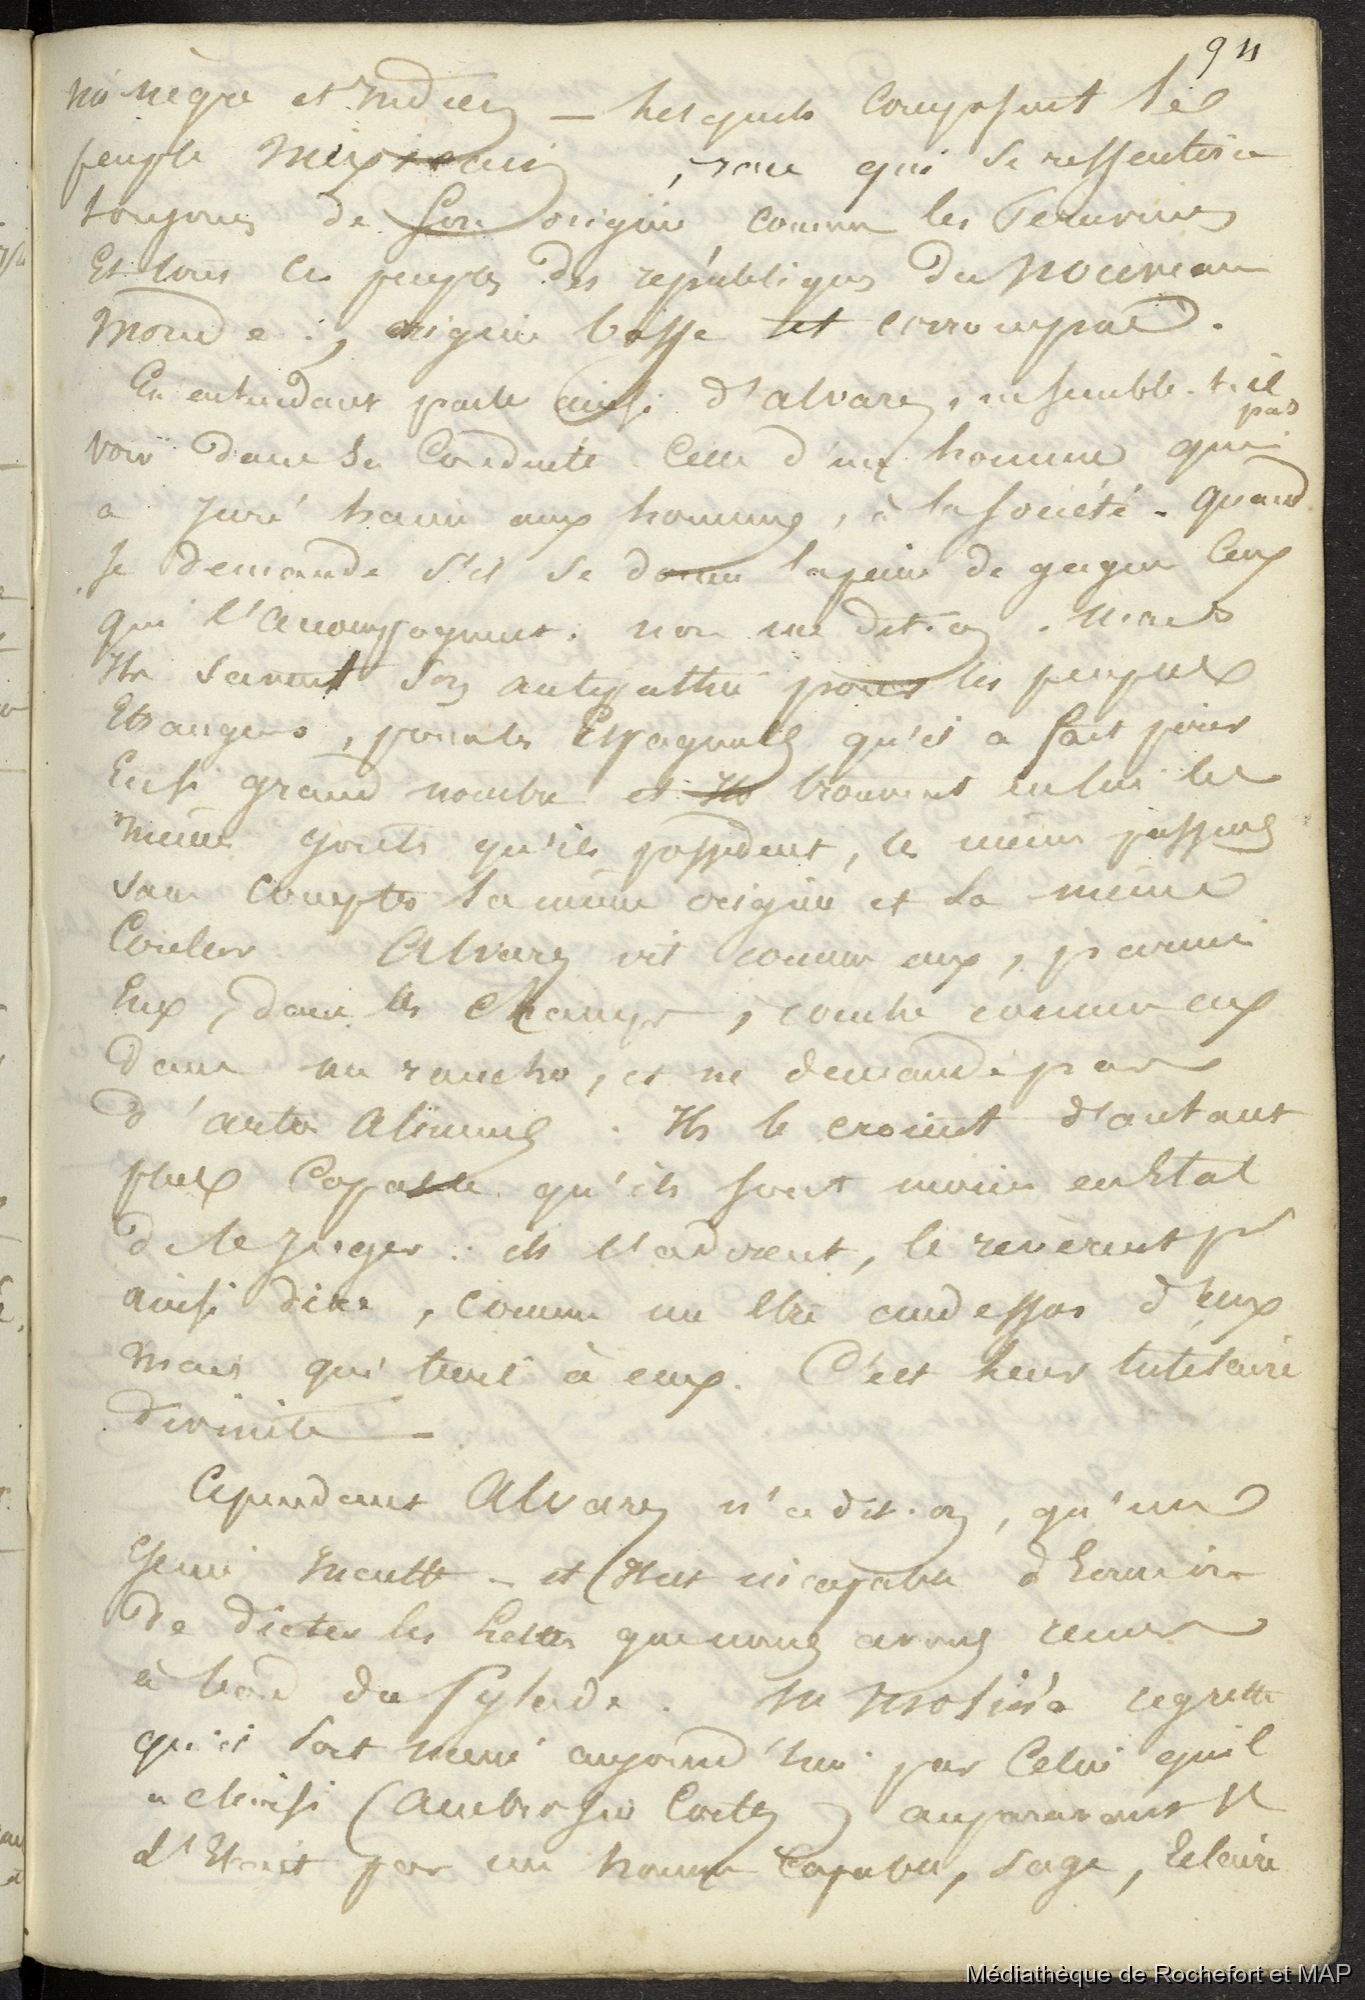 94
mi nègre et Indien — lesquels composent le
peuple Mexicain, race qui se ressentira
toujours de son origine comme les Péruviens
et tous les peuples des républiques du nouveau
monde : , origine basse et corrompue.
En entendant parler ainsi d'alvarez, ne semble-t-il
pas
voir dans sa conduite celle d'un homme qui
a juré haine aux hommes, à la société - quand
je demande s'il se donne la peine de gagner ceux
qui l'accompagnent. non me dit-on. mais
ils savent son antipathie pour les peuples
Etrangers, pour les Espagnols qu'il a fait périr
en si grand nombre et ils trouvent en lui les
mêmes gouts qu'ils possèdent, les mêmes passions
sans compter la même origine et la même
couleur. Alvarez vit comme eux, parmi
eux, dans les champs, couche comme eux
dans un rancho, et ne demande pas
d'autres aliments. Ils le croient d'autant
plus capable qu'ils sont moins en Etat
de le juger : ils l'adorent, le révèrent pr
ainsi dire, comme un être au dessus d'eux
mais qui tient à eux. C'est leur tutélaire
divinité —
Cependant Alvarez n'a dit-on, qu'un
génie inculte - et est incapable d'Ecrire
de dicter les lettres que nous avons reçues
à bord du Pylade. M Molina regrette
qu'il soit mené aujourd'hui par celui qu'il
a choisi (Ambrosio Cortez) auparavant il
l'Etait par un homme capable, sage, Eclairé
Médiathèque de Rochefort et MAP